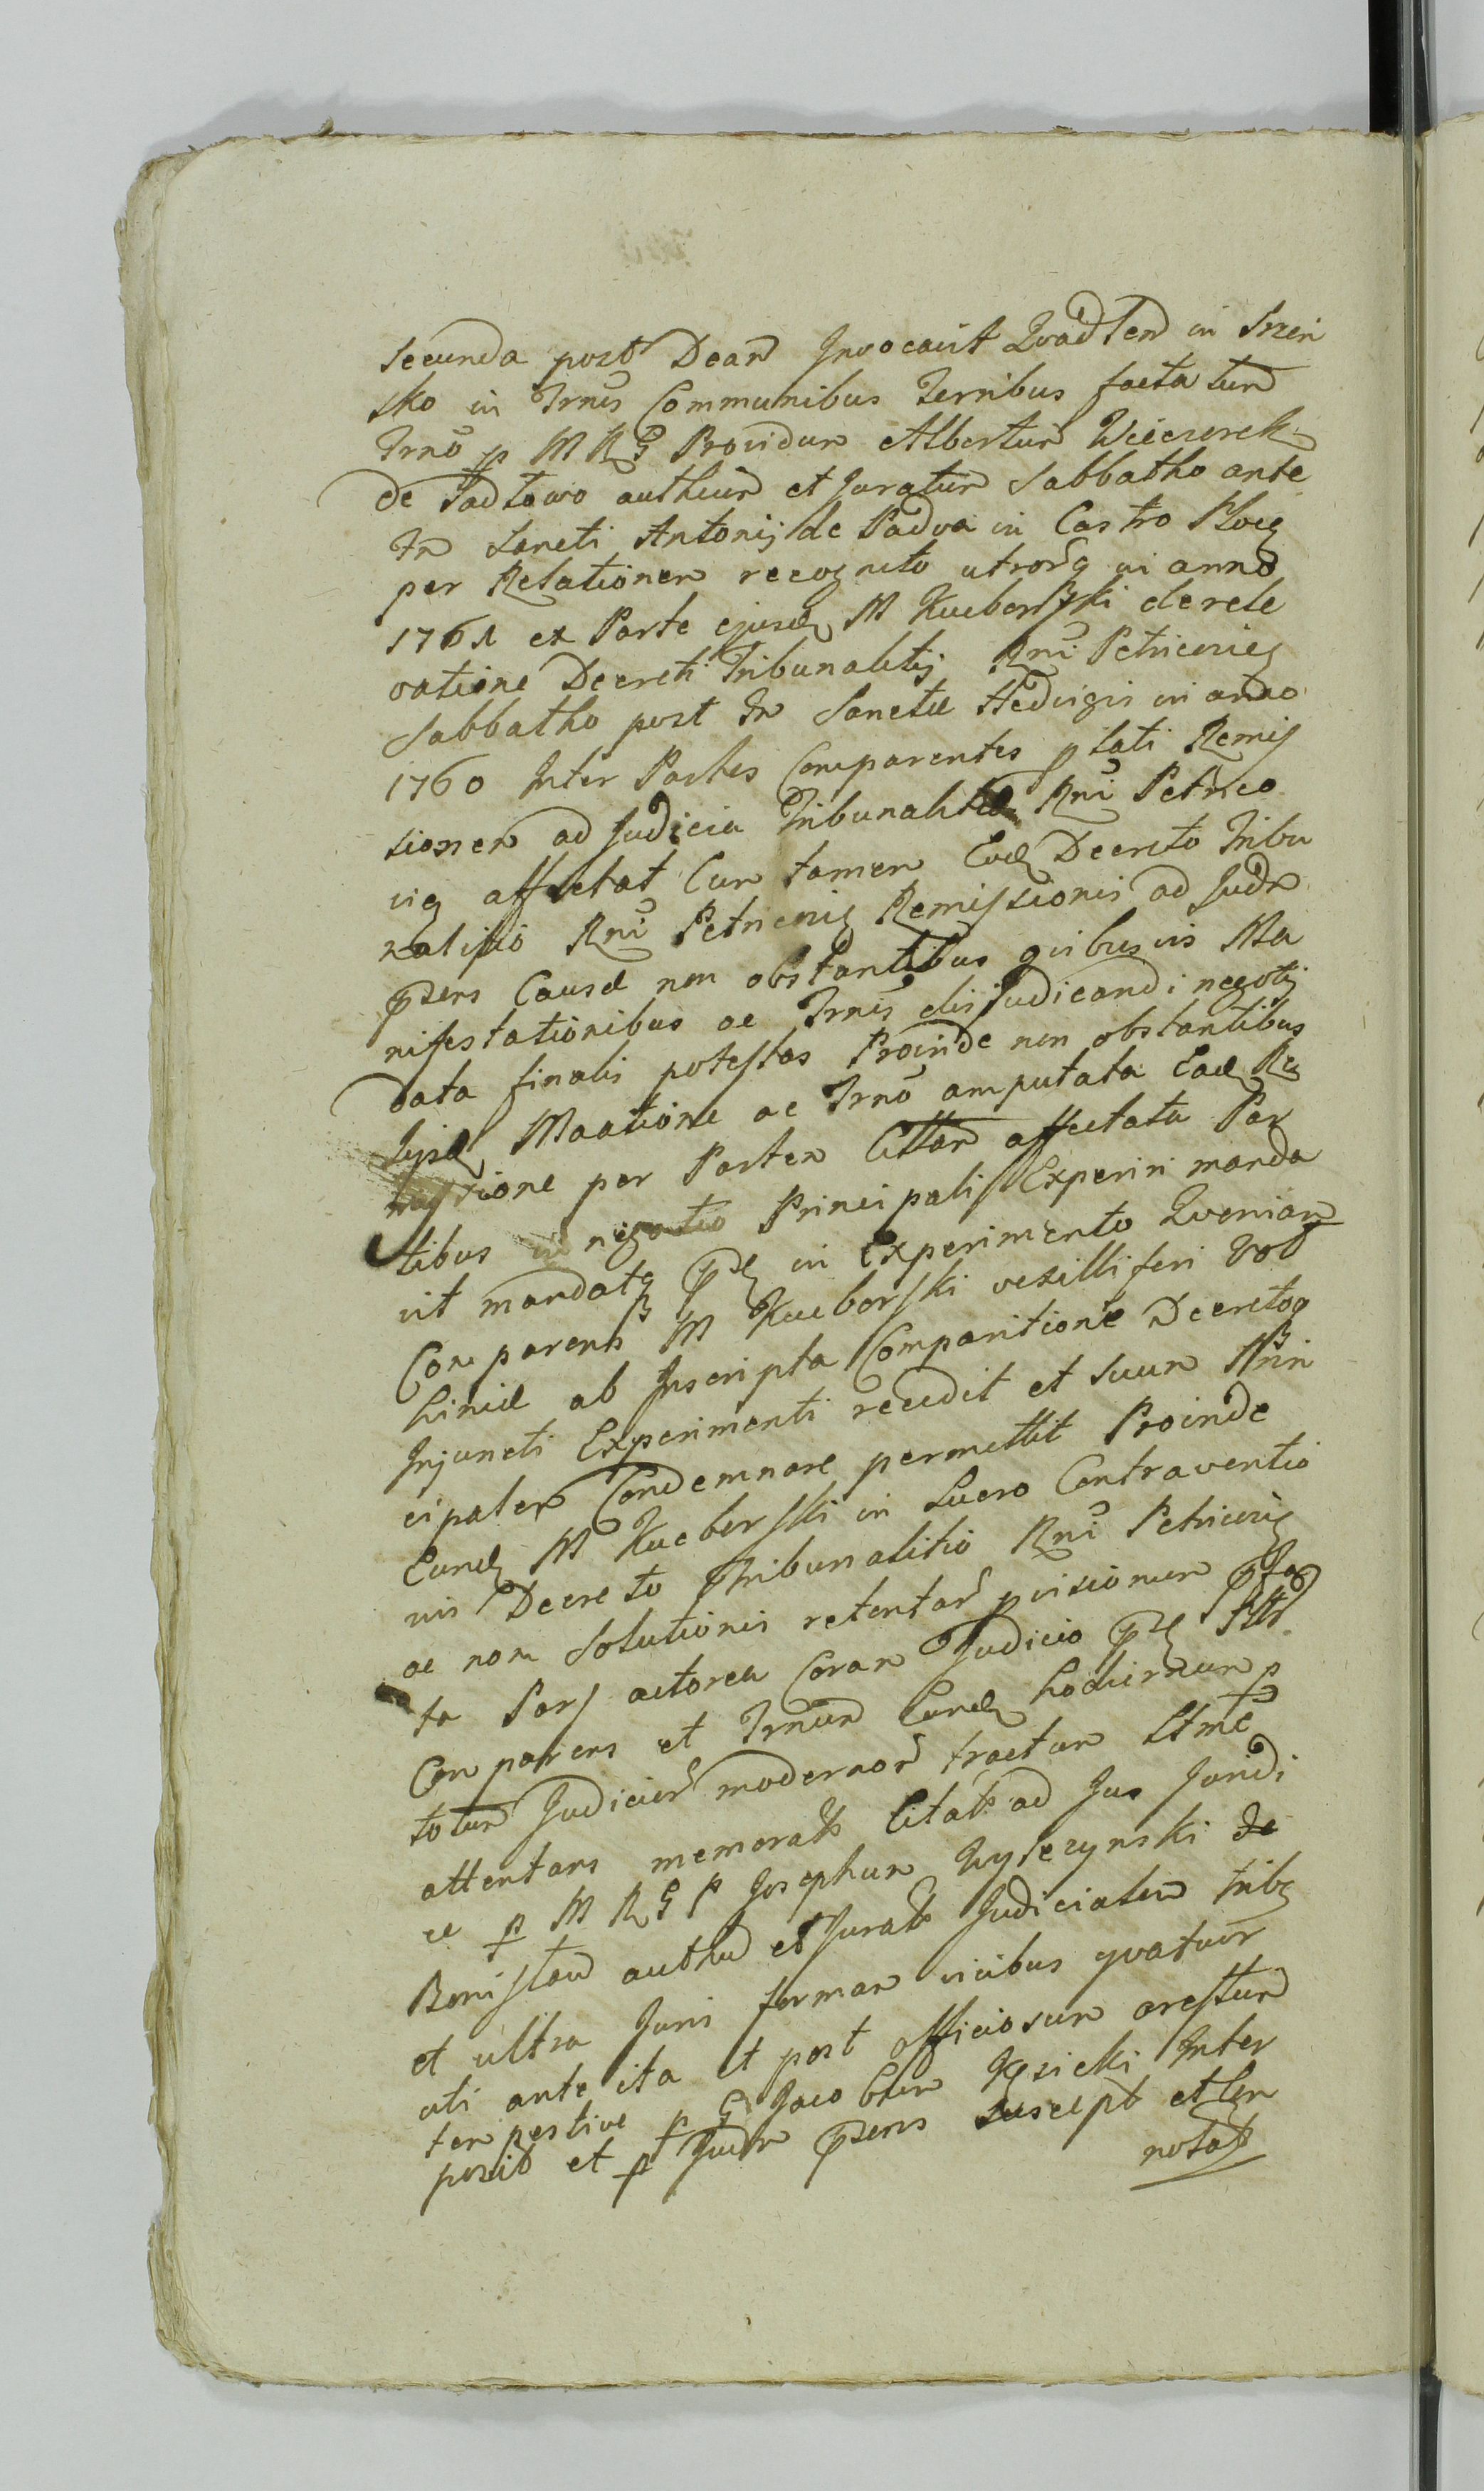 secunda post Dcam Invocavit Quadlem in Szren
sko in Trnis Communibus Ternibus facta tum
Trno p M R G Providum Albertum Wieczorek
de Padłowo authum et Juratum Sabbatho ante
Fm Sancti Antonij de Padva in Castro Ploc
per Relationem recognito utrorq in anno
1761 ex Parte ejusd M Kucborski de rele
vatione Decreti Tribunalitij Rni Petricovie
Sabbatho post Fm Sanctæ Hedvigis in anno
1760 Inter Partes Comparentes plati Remis
sionem ad Judicia Tribunalitia Rni Petrico
vie affectat Cum tamen Eod Decreto Tribu
nalitio Rni Petricovie Remissionis ad Judm
pzens Causæ non obstantibus quibusvis Ma
nifestationibus ac Trnis disjudicandi negotij
data finalis potestas Proinde non obstantibus
Ejusd Maatione ac Trno amputata Ead Re
missione per Partem Cittam affectata Par
tibus in negotio Principali Experiri manda
vit mandat in Experimento Quoniam
Comparens M Kucborski vexilliferi
hiniæ ab Inscripta Comparitione Decretoq
Injuncti Experimenti recedit et suum Prin
cipalem Condemnare permittit Proinde
Eund M Kucborski in Lucro Contraventio
nis Decreto Tribunalitio Rni Petricovie
ac non Solutionis retentar pvisionum
ta Pars actorea Coram Judicio
Comparens et Trnum Eund hodiernum p
totum Judicior modernor tractum
attentans memorat Citat ad Jus Juridi
ce p M R G P Josephum Wyszynski de
Bonislaw authum et Jurat Judicialem trib
et ultra Juris formam vicibus quatuor
uti ante ita et post officiosum arestum
tempestive p G Jacobum Kęsicki Inter
posit et p Judm pzens suscept et Con
notat